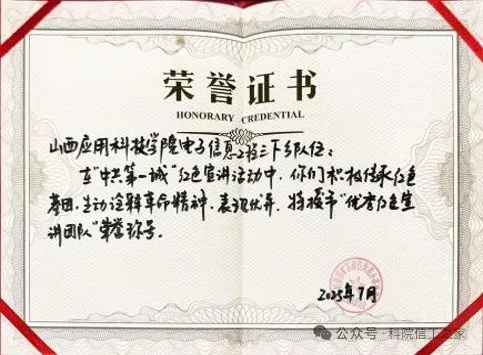 荣誉证书
HONORARY CREDENTIAL
山西应用科技学院电子信息工程三下乡队伍：
在"中共第一城"红色宣讲活动中，你们积极传承红色
基因，生动诠释革命精神，表现优异，特授予"优秀红色宣
讲团队"荣誉称号。
2025年7月
公众号·科院信工之家